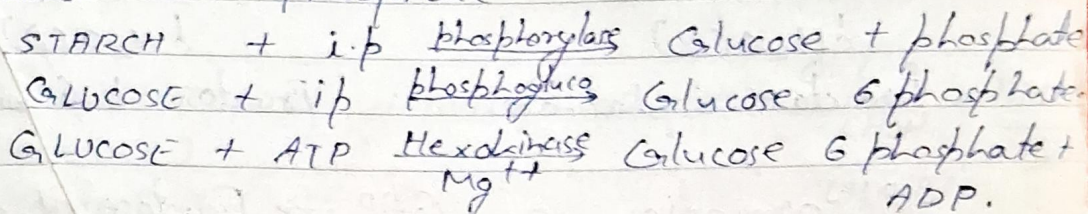 STARCH + i.p phosphorylase Glucose + phosphate
GLUCOSE + ip phosphogluco Glucose 6 phosphate.
GLUCOSE + ATP Hexokinase Glucose 6 phosphate +
Mg++ ADP.